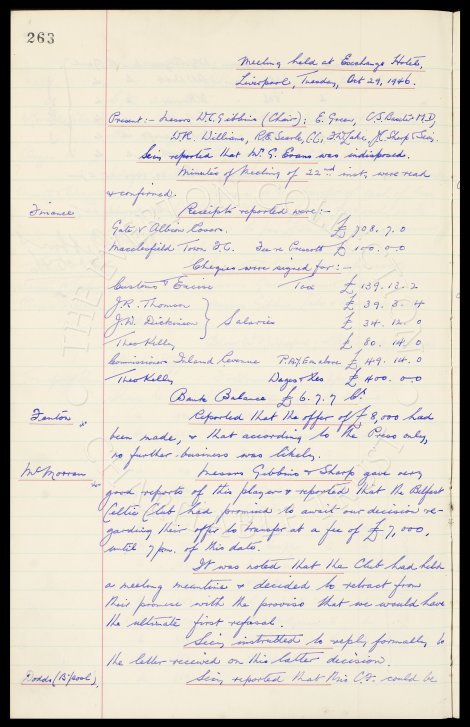 263
Meeting held at Exchange Hotel,
Liverpool, Tuesday, Oct 29, 1946.
Present:- Messrs W.C. Gibbins (Chair); E. Green, C.S. Baxter M.D,
W.R. Williams, R.E. Searle, Sharp & Secy.
Secy reported that Mr. G. Evans was indisposed.
Minutes of Meeting of 22nd inst, were read
& confirmed.
Finance
Receipts reported were:-
Gate v Albion Cosn. £ 708. 7. 0
Macclesfield Town F.C. Fee re Prescott £ 100. 0. 0
Cheques were signed for:-
Customs & Excise Tax £ 139. 13. 2
J.R. Thomson £ 39. 3. 4
J.W. Dickinson } Salaries £ 34. 12. 0
Theo Kelly £ 80. 14. 0
Commissioner Inland Revenue on above £ 49. 14. 0
Theo Kelly Wages & Xes £ 400. 0. 0
Bank Balance £ 6. 7. 7 Cr
Fenton
Reported that the offer of £ 8,000 had
been made, & that according to the Press only,
no further business was likely.
McMorran
Messrs Gibbins & Sharp gave very
good reports of this player & reported that the Belfast
Celtic Club had promised to await our decision re-
garding their offer to transfer at a fee of £ 7,000,
until 7 pm. of this date.
It was noted that the Club had held
a meeting meantime & decided to retract from
their promise with the proviso that we would have
the ultimate first refusal.
Secy instructed to reply formally to
the letter received on this latter decision.
Dodds (B'pool),
Secy reported that this C.F. could be